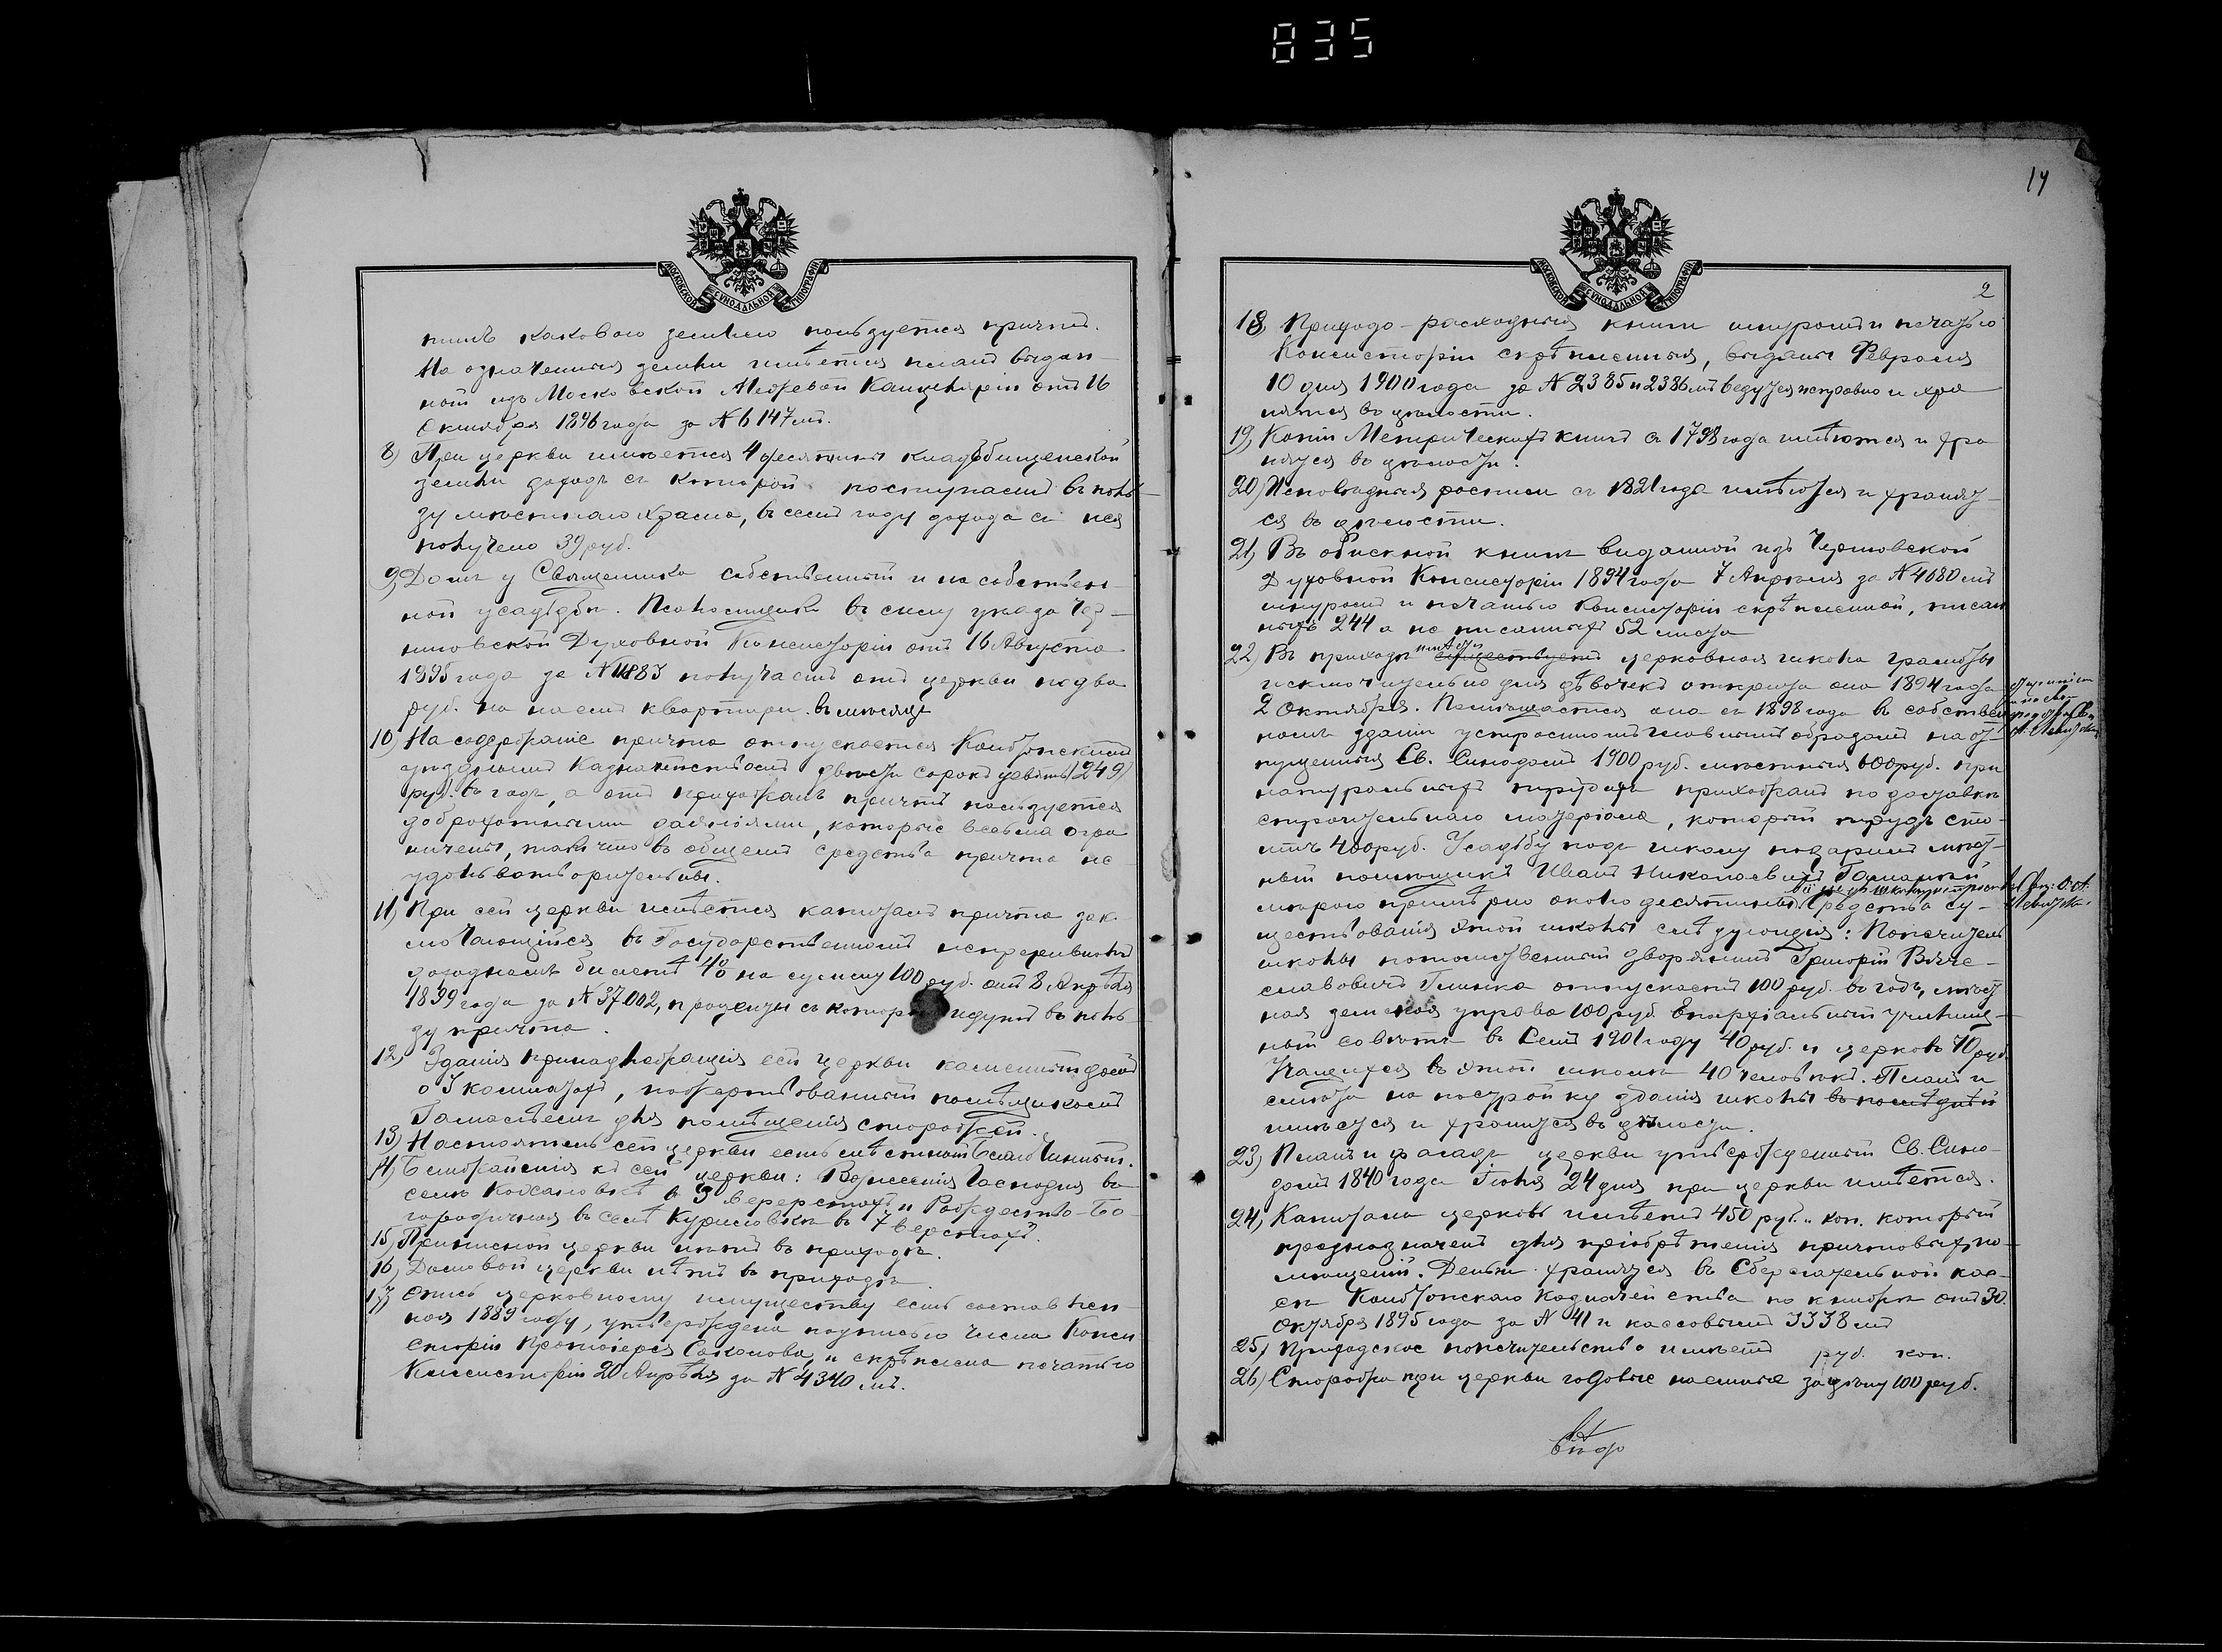 835
14
МОСКОВСКОЙ СѴНОДАЛЬНОЙ ТИПОГРАФІИ
каковою землею пользуется причтъ.
На означенныя земли имѣется планъ выдан-
ной изъ Московской Межевой Канцеляріи отъ 16
Октября 1896 года за N 6147 мъ.
8) При церкви имѣется 4 десятины кладбищенской
земли доходъ съ которой поступаетъ въ поль-
зу мѣстнаго храма, въ семъ году дохода съ нея
получено 39 руб.
9) Домъ у Священника собственный и на собствен-
ной усадьбѣ. Псаломщикъ въ силу указа Чер-
ниговской Духовной Консисторіи отъ 16 Августа
1895 года за N 11883 получаетъ отъ церкви по два
руб. на наемъ квартиры въ мѣсяцъ
10) На содержаніе причта отпускается Конотопскимъ
уѣзднымъ Казначействомъ двѣсти сорокъ девять (249)
руб. въ годъ, а отъ прихожанъ причтъ пользуется
доброхотными даяніями, которые весьма огра
ничены, такъ что въ общемъ средства причта не
удовлетворительны.
11) При сей церкви имѣется капиталъ причта зак-
лючающійся въ Государственномъ непрерывно
доходномъ билетѣ 4% на сумму 100 руб. отъ 8 Апрѣля
1899 года за N 37002, проценты съ котор идутъ въ поль-
зу причта.
12) Зданія принадлежащія сей церкви каменный домъ
о 3 комнатахъ, пожертвованный помѣщикомъ
Гамалѣемъ для помѣщенія сторожей.
13) Настоятель сей церкви есть мѣстный Благочинный.
14) Ближайшія къ сей церкви: Вознесенія Господня въ
селѣ въ 3 верстахъ и Рождество-Бо-
городичная въ селѣ Куриловкѣ въ 7 верстахъ.
15) Приписной церкви нѣтъ въ приходѣ.
16) Домовой церкви нѣтъ въ приходѣ.
17) Опись церковному имуществу есть составлен-
ная 1889 году, утверждена подписью члена Конси-
сторіи Протоіерея и скрѣплена печатью
Консисторіи 20 Апрѣля за N 4340 мъ.
МОСКОВСКОЙ СѴНОДАЛЬНОЙ ТИПОГРАФІИ
2
18) Приходо-расходныя книги шнуромъ и печатью
Консисторіи скрѣпленныя, выданы Февраля
10 дня 1900 года за N 2385 и 2386 мъ ведутся исправно и хра
нятся въ цѣлости.
19) Копіи Метрическихъ книгъ съ 1798 года имѣются и хра
нятся въ цѣлости.
20) Исповѣдныя росписи съ 1821 года имѣются и хранят-
ся въ цѣлости.
21) Въ обыскной книгѣ выданной изъ Черниговской
Духовной Консисторіи 1894 года 7 Апрѣля за N 4080 мъ
шнуромъ и печатью Консисторіи скрѣпленной, писан
ныхъ 244 а не писанныхъ 52 листа
22) Въ приходѣ имѣется существуетъ церковная школа грамоты
исключительно для дѣвочекъ открыта она 1894 года
2 Октября. Помѣщается она съ 1898 года въ собствен
номъ зданіи устроенномъ главнымъ образомъ на от-
пущенныя Св. Синодомъ 1900 руб. мѣстныя 600 руб. при
натуральныхъ трудахъ прихожанъ по доставкѣ
строительнаго матеріала, который трудъ сто-
итъ 400 руб. Усадьбу подъ школу подарилъ мѣст-
ный помѣщикъ Иванъ Николаевичъ Гамалѣй
мѣрою примѣрно около десятины. Средства су-
ществованія этой школы слѣдующія: Попечитель
школы потомственный дворянинъ Григорій Вяче-
славовичъ Глинка отпускаетъ 100 руб. въ годъ, мѣст
ная земская управа 100 руб. Епархіальный училищ-
ный совѣтъ въ семъ 1901 году 40 руб. и церковь 40 руб.
Учащихся въ этой школѣ 40 человѣкъ. Планъ и
смѣта на постройку зданія школы
имѣется и хранится въ цѣлости.
23) Планъ и фасадъ церкви утвержденный Св. Сино-
домъ 1840 года Іюня 24 дня при церкви имѣется.
24) Капитала церковь имѣетъ 450 руб. „ коп. который
предназначенъ для пріобрѣтенія причтовыхъ по-
мѣщеній. Деньги хранятся въ Сберегательной кас-
сѣ Конотопскаго Казначейства по книжкѣ отъ 30
Октября 1895 года за N 41 и кассовымъ 3338 мъ
25) Приходское попечительство имѣетъ руб. коп.
26) Сторожа при церкви годовые наемные за цѣну 100 руб.